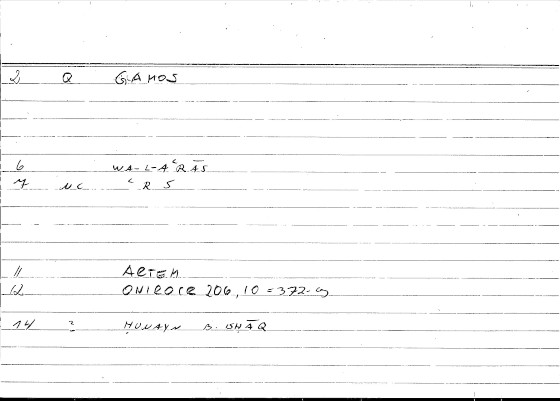 2 Q GAMOS
6 WA-L-AʿRĀS
7 NC ʿRS
11 ARTEM
12 ONIROCR 206,10 = 372-9
14 ? ḤUNAYN B. ISḤĀQ